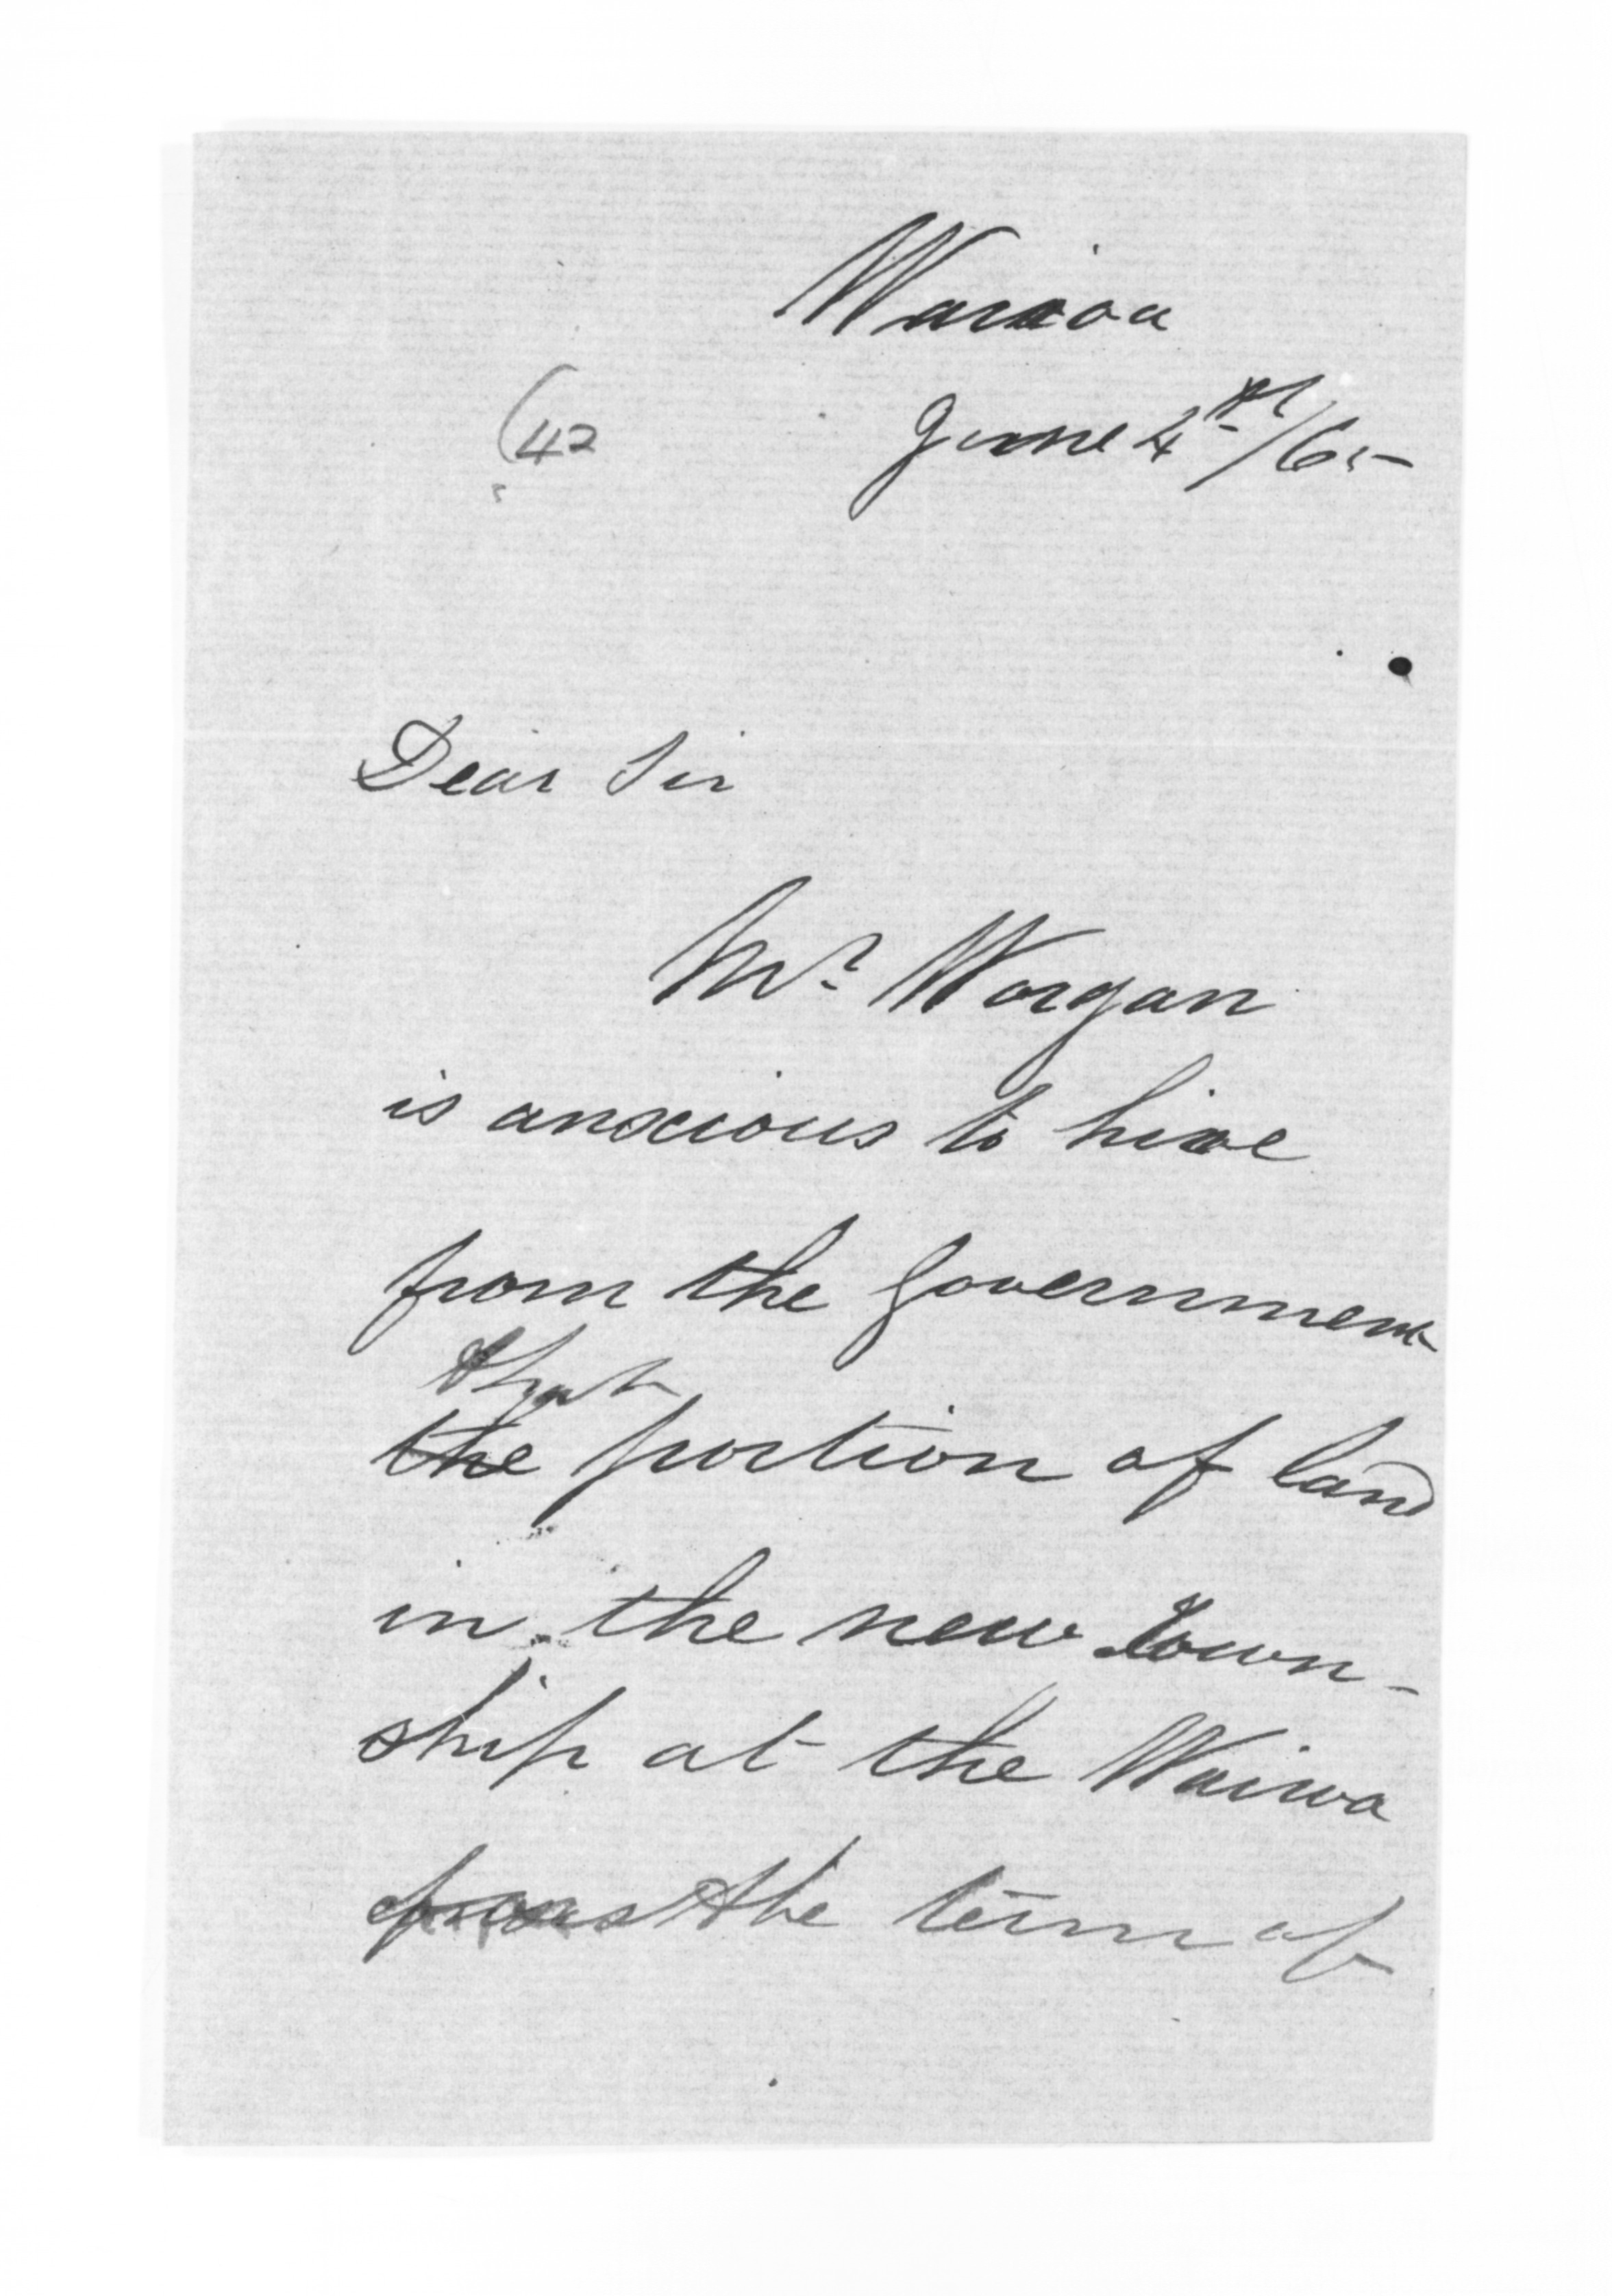 Wairoa
(42
June 4th/65
Dear Sir
Mr. Worgan
is anxious to hire
from the Government
that
the portion of land
in the new Town-
ship at the Wairoa
the term of